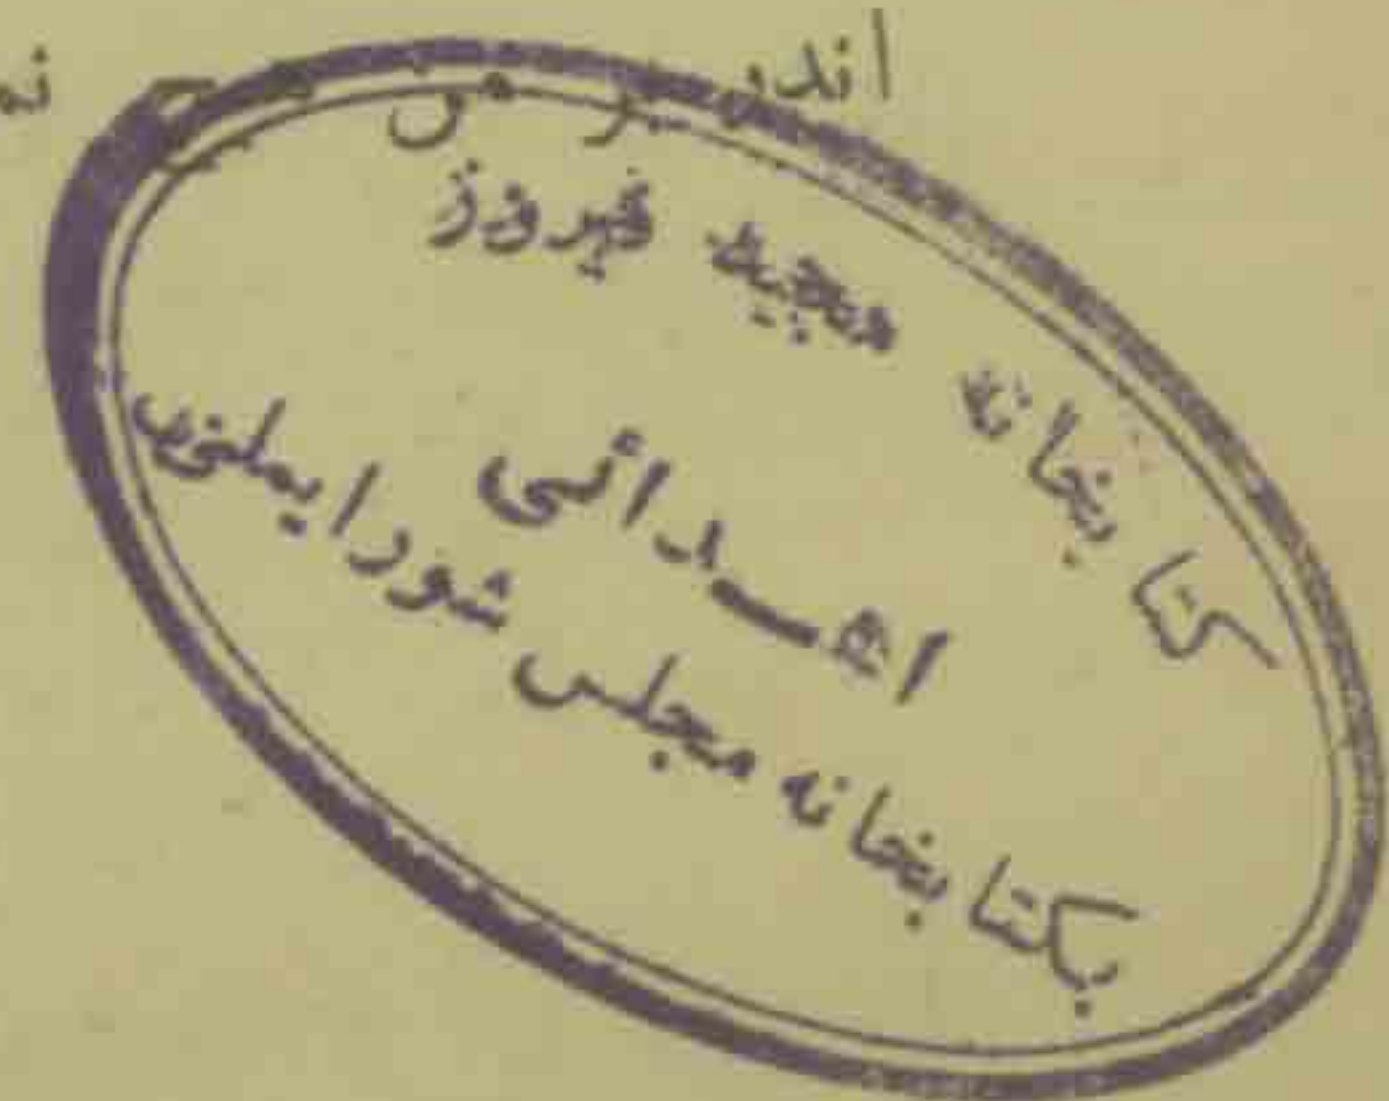 اندر
کتابخانه مجید فیروز
اهدائی
بکتابخانه مجلس شورایملی